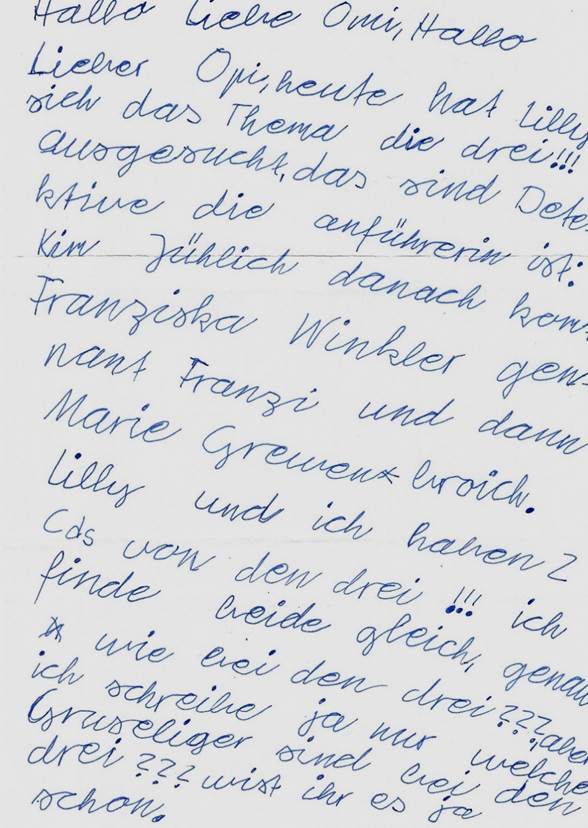 Hallo Liebe Omi, Hallo
Lieber Opi, heute hat Lilly
sich das Thema die drei!!!
ausgesucht, das sind Dete
ktive die anführerin ist:
Kim Jühlich danach kom
Franziska Winkler gen
nant Franzi und dann
Marie Grewenx broich.
Lilly und ich haben 2
Cds von den drei !!! ich
finde beide gleich, genau
wie bei den drei ??? aber
ich schreibe ja nur welche
Gruseliger sind bei den
drei ??? wist ihr es ja
schon.